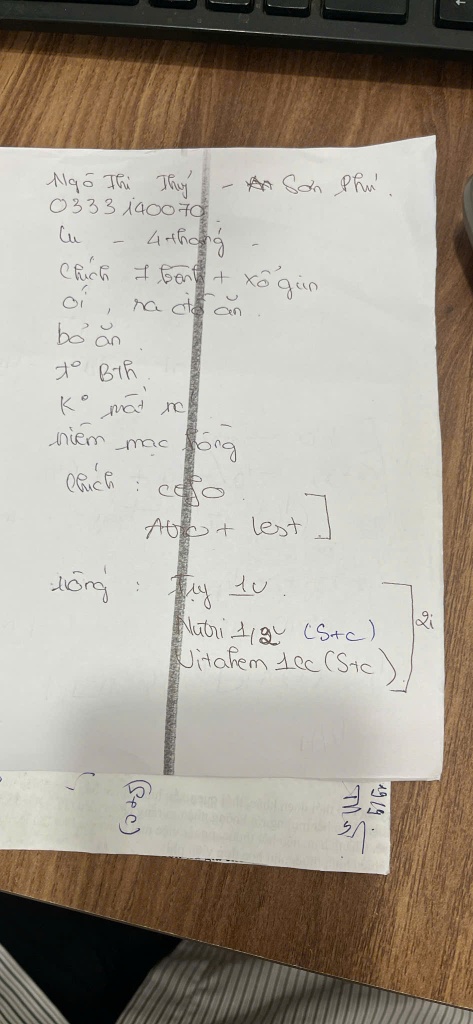 Ngô Thị Thuý - Sơn Phú.
0333140070
Cu - 4 tháng -
Chích 1 bệnh + xổ giun
ói, ra đồ ăn.
bỏ ăn.
t° Bth.
K° mất nc
niêm mạc hồng
Chích : cefo
Atro + lest
uống : Try 1v.
Nutri 1/2v (S+c)
Vitahem 1cc (S+c)
2i
(S+c)